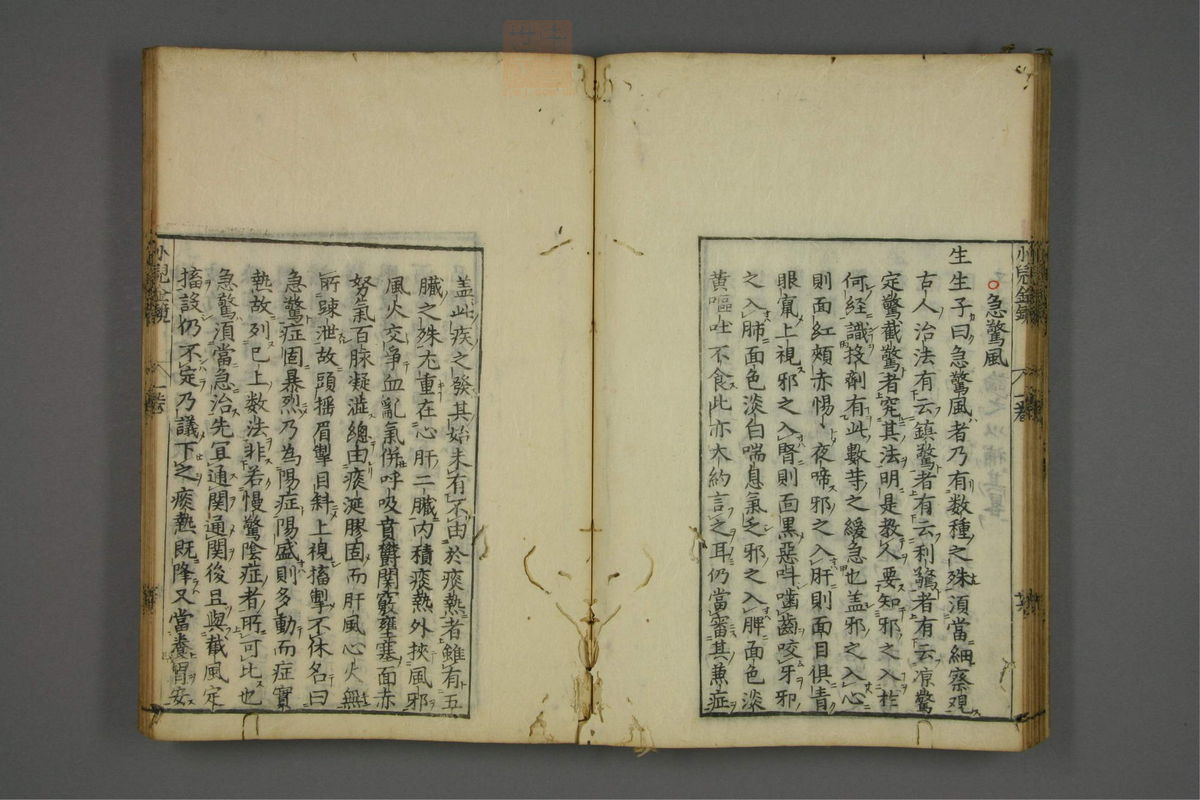 小兒金鏡 一卷
急驚風
生生子曰急驚風者乃有数種之殊湏當細察观
古人治法有云鎮驚者有云利驚者有云凉驚
定驚截驚者究其法明是教人要知邪之入於
何经識投劑有此數等之緩急也盖邪之入心
則面紅頰赤惕々夜啼邪之入肝則面目俱青
眼竄上視邪之入腎則面黒惡叫嚙齒咬牙邪
之入肺面色淡白喘息氣乏邪之入脾面色淡
黄嘔吐不食此亦大約言之耳仍當審其兼症
盖此疾之發其始未有不由於痰熱者雖有五
臓之殊尤重在心肝二臓内積痰熱外挾風邪
風火交爭血亂氣併呼吸賁欝関竅壅塞面赤
努氣百脉凝澁總由痰涎膠固而肝風心火無
所踈泄故頭摇眉掣目斜上視搐掣不休名曰
急驚症固暴烈乃為陽症陽盛則多動而症實
熱故列已上数法非若慢驚陰症者所可比也
急驚湏當急治先宜通関通関後且與截風定
搐設仍不定乃議下之痰熱既降又當養胃安
小兒金鏡 一卷